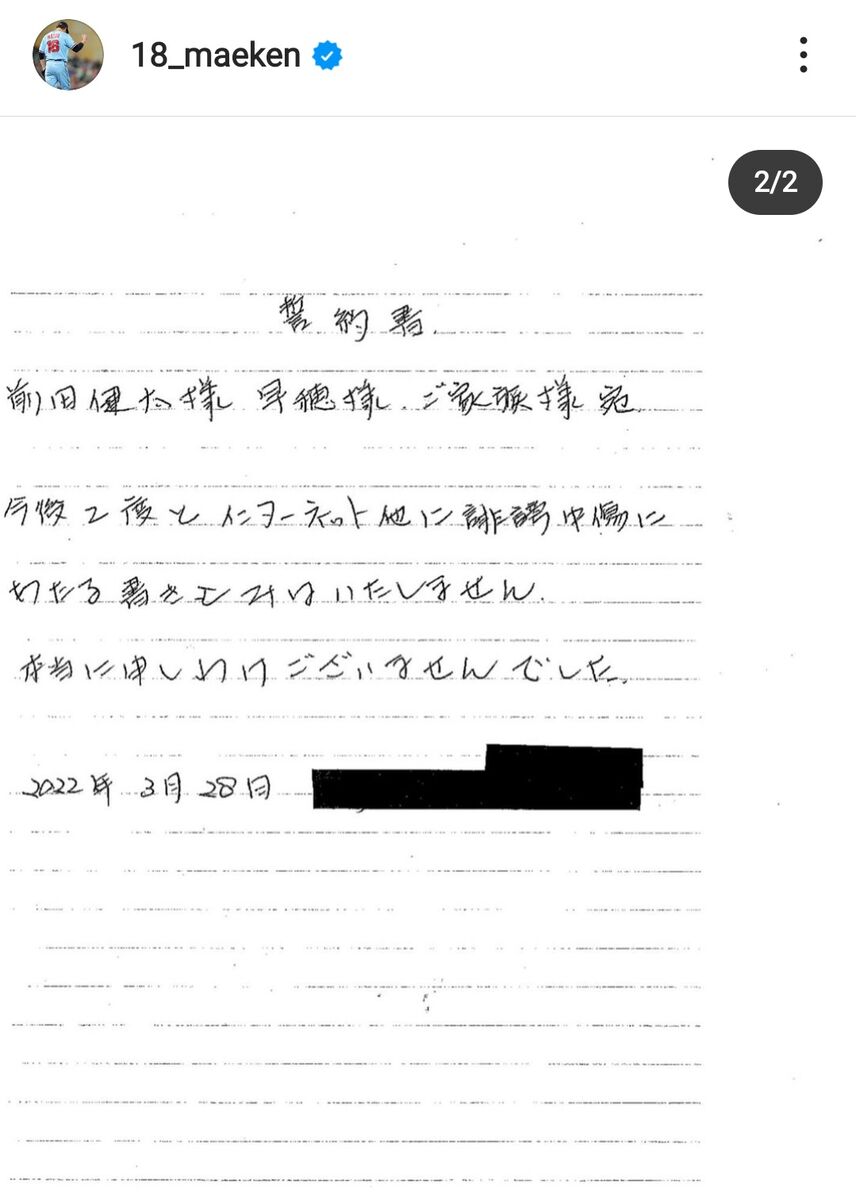 18_maeken
2/2
誓約書.
前田健太様 早穂様.ご家族様 宛.
今後2度とインターネット他に誹謗中傷に
わたる書きこみはいたしません.
本当に申しわけございませんでした.
2022年 3月 28日